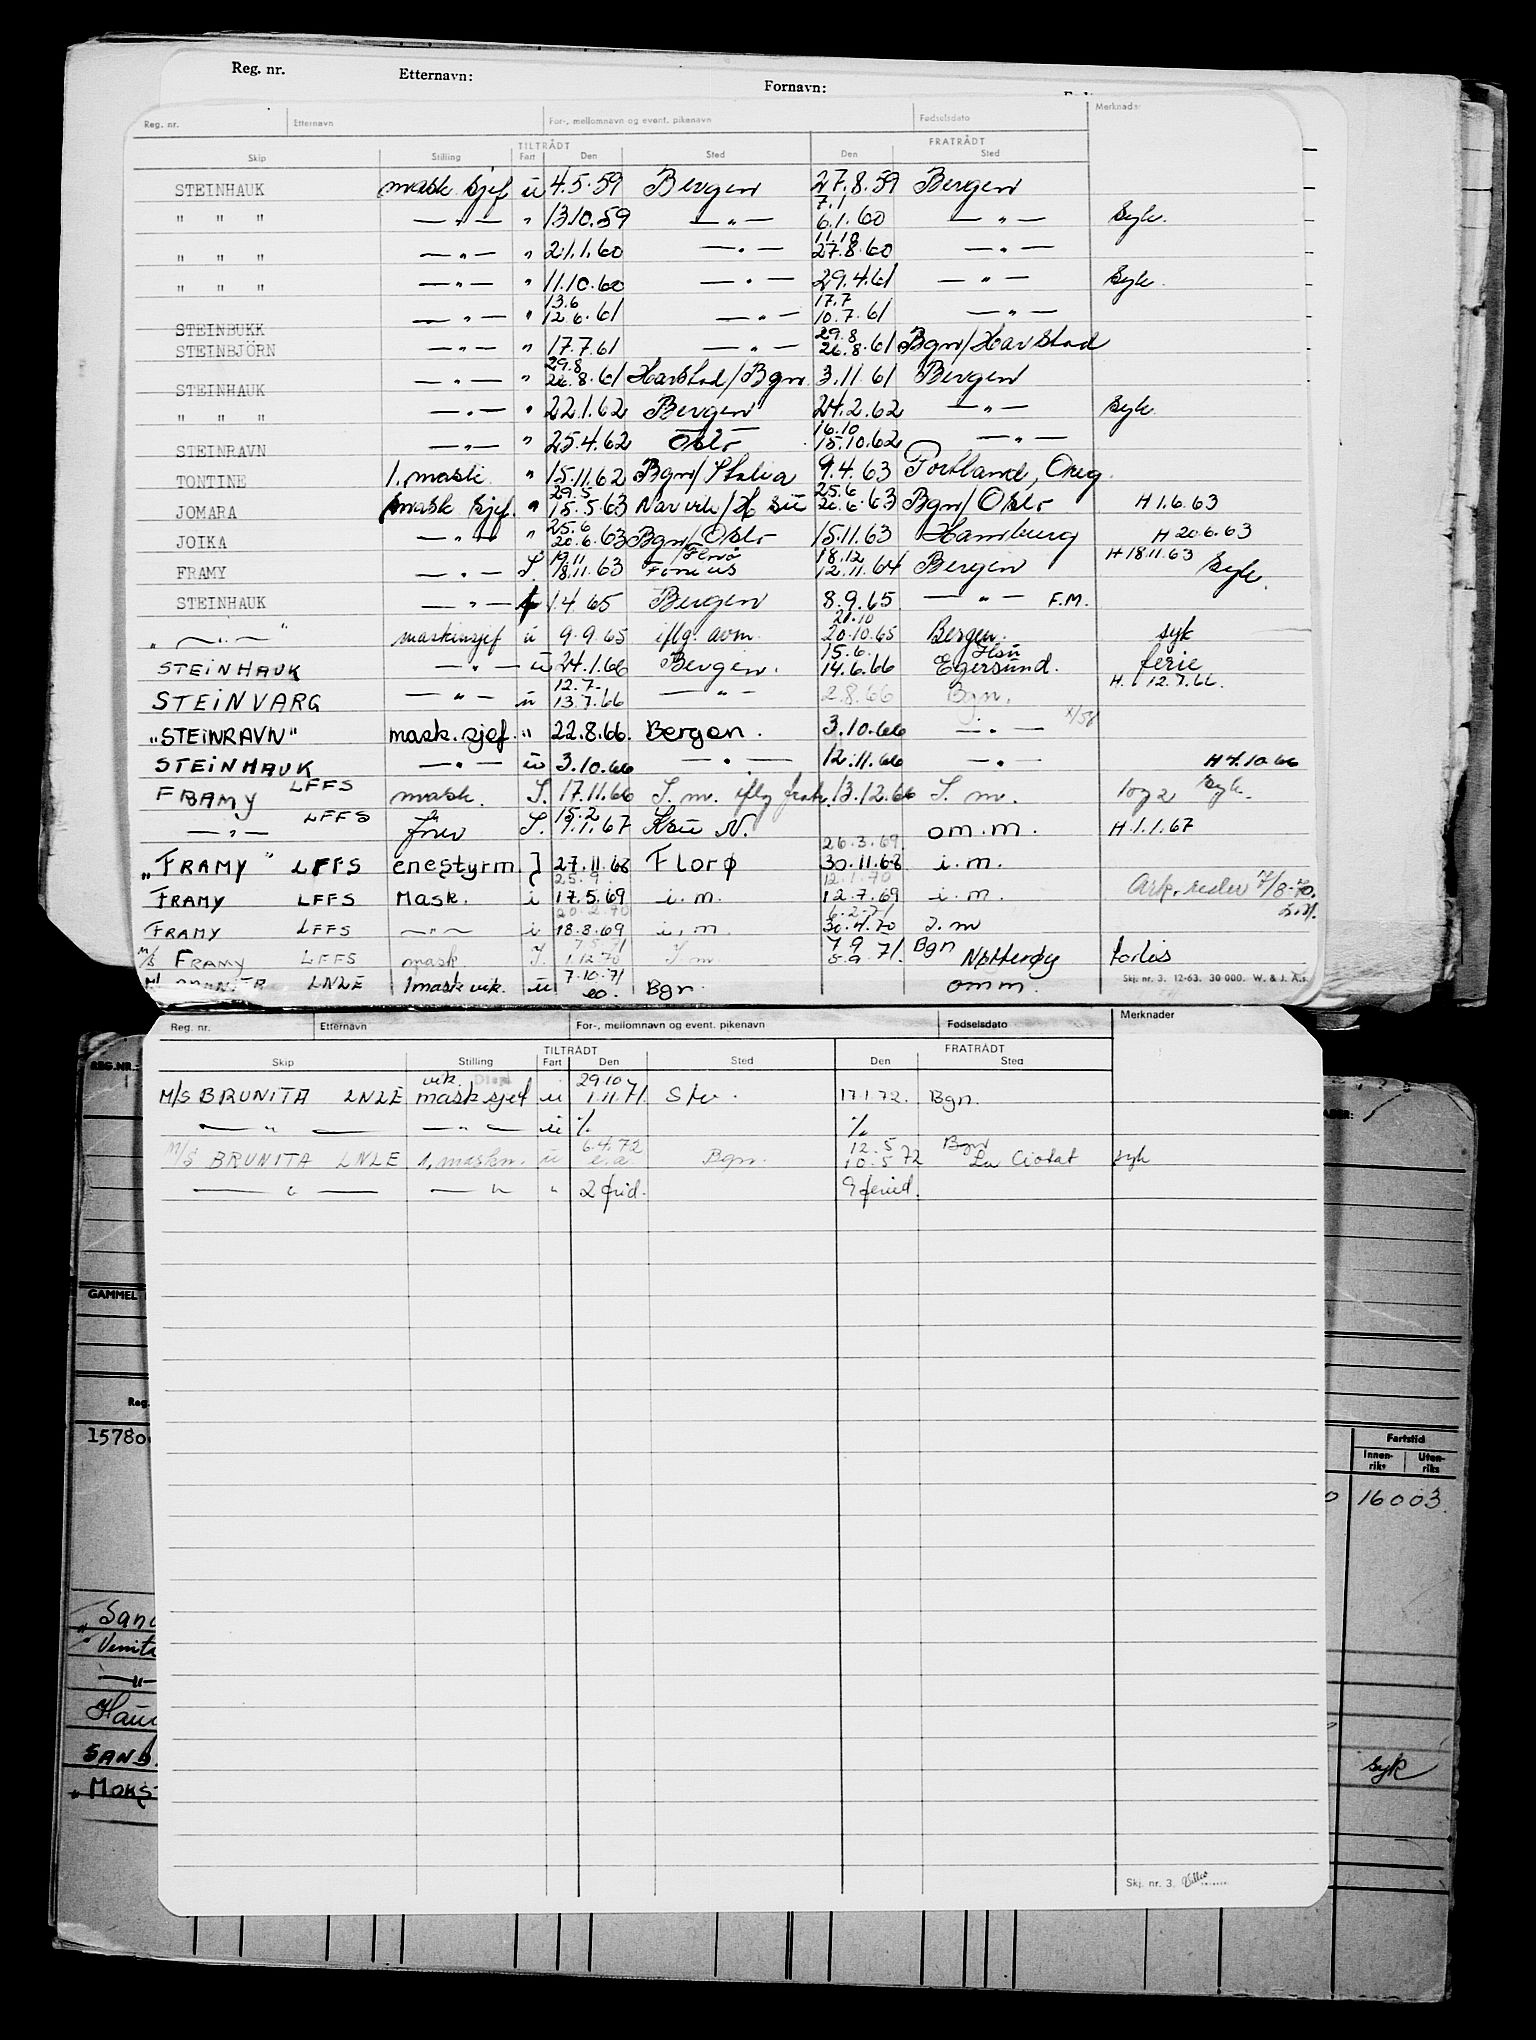 Reg. nr. Etternavn: Fornavn:
Reg. nr. Etternavn For-, mellomnavn og event. pikenavn Fødselsdato Merknader
TILTRÅDT FRATRÅDT
Skip Stilling Fart Den Sted Den Sted
STEINHAUK mask. sjef u 4.5.59 Bergen 27.8.59 Bergen
" " " — " — " 13.10.59 — " — 7.1 6.1.60 — " — Syk.
" " " — " — " 21.1.60 — " — 11.10 27.8.60 — " —
" " " — " — " 11.10.60 — " — 29.4.61 — " — Syk.
STEINBUKK — " — " 13.6 12.6.61 — " — 17.7 10.7.61 — " —
STEINBJÖRN — " — " 17.7.61 — " — 29.8 26.8.61 Bgn/Harstad
STEINHAUK — " — " 29.8 26.8.61 Harstad/Bgn. 3.11.61 Bergen
" " " — " — " 22.1.62 Bergen 24.2.62 — " — Syk.
STEINRAVN — " — " 25.4.62 Oslo 16.10 15.10.62 — " —
TONTINE 1. mask. " 15.11.62 Bgn/Italia 9.4.63 Portland, Oreg.
JOMARA mask sjef. " 29.5 15.5.63 Narvik/H sü 25.6 20.6.63 Bgn/Oslo H 1.6.63
JOIKA — " — " 25.6 20.6.63 Bgn/Oslo 15.11.63 Hamburg H 20.6.63
FRAMY — " — I. 19.11 18.11.63 Florø 18.12 12.11.64 Bergen H 18.11.63 Syk.
STEINHAUK — " — 1.4.65 Bergen 8.9.65 — " — F.M.
" — " — " maskinsjef u 9.9.65 iflg. avm. 21.10 20.10.65 Bergen. syk
STEINHAUK — " — u 24.1.66 Bergen. 15.6. 14.6.66 Hsü Egersund. ferie
STEINVARG — " — u 12.7. 13.7.66 — " — 2.8.66 Bgn. H. 12.7.66.
"STEINRAVN" mask. sjef. " 22.8.66. Bergen. 3.10.66 — " —
STEINHAUK — " — u 3.10.66 — " — 12.11.66 — " — H 7.10.66
FRAMY LFFS mask. I. 17.11.66 I. m. iflg frakt. 13.12.66 I. m. 1 og 2 syk.
— " — LFFS fører I. 15.2 9.1.67 Ksü N. om.m. H.1.1.67
"FRAMY" LFFS enestyrm. 27.11.68 Florø 26.3.69 30.11.68 i.m.
FRAMY LFFS Mask. i 25.9 17.5.69 i.m. 12.1.70 12.7.69 i.m.
FRAMY LFFS — " — i 20.2.70 18.8.69 i.m 6.2.71 30.4.70 I.m
M/S FRAMY LFFS mask I. 7.5.71 1.12.70 I.m 7.9.71. Bgn Nøtterøy forlis
LNLE 1 mask vik. u 7.10.71 eo. Bgn. omm. Skj. nr. 3. 12-63. 30 000. W. & J. A.s.
Reg. nr. Etternavn For-, mellomnavn og event. pikenavn Fødselsdato Merknader
TILTRÅDT FRATRÅDT
Skip Stilling Fart Den Sted Den Sted
M/S BRUNITA LNLE vik. mask sjef u 29.10 1.11.71. Stv. 17.1.72. Bgn.
— " — — " — u % %
M/S BRUNITA LNLE 1. maskn. u 6.4.72 e.a. Bgn. 12.5 10.5.72 Bgn La Ciotat syk
— " — — " — " 2 frid. 9 feried.
Skj. nr. 3.
REG.NR.:
GAMMEL
Reg.
1578
Fartstid
Innen-riks Uten-riks
16003.
Vemta
SAND
syk
"MOKS